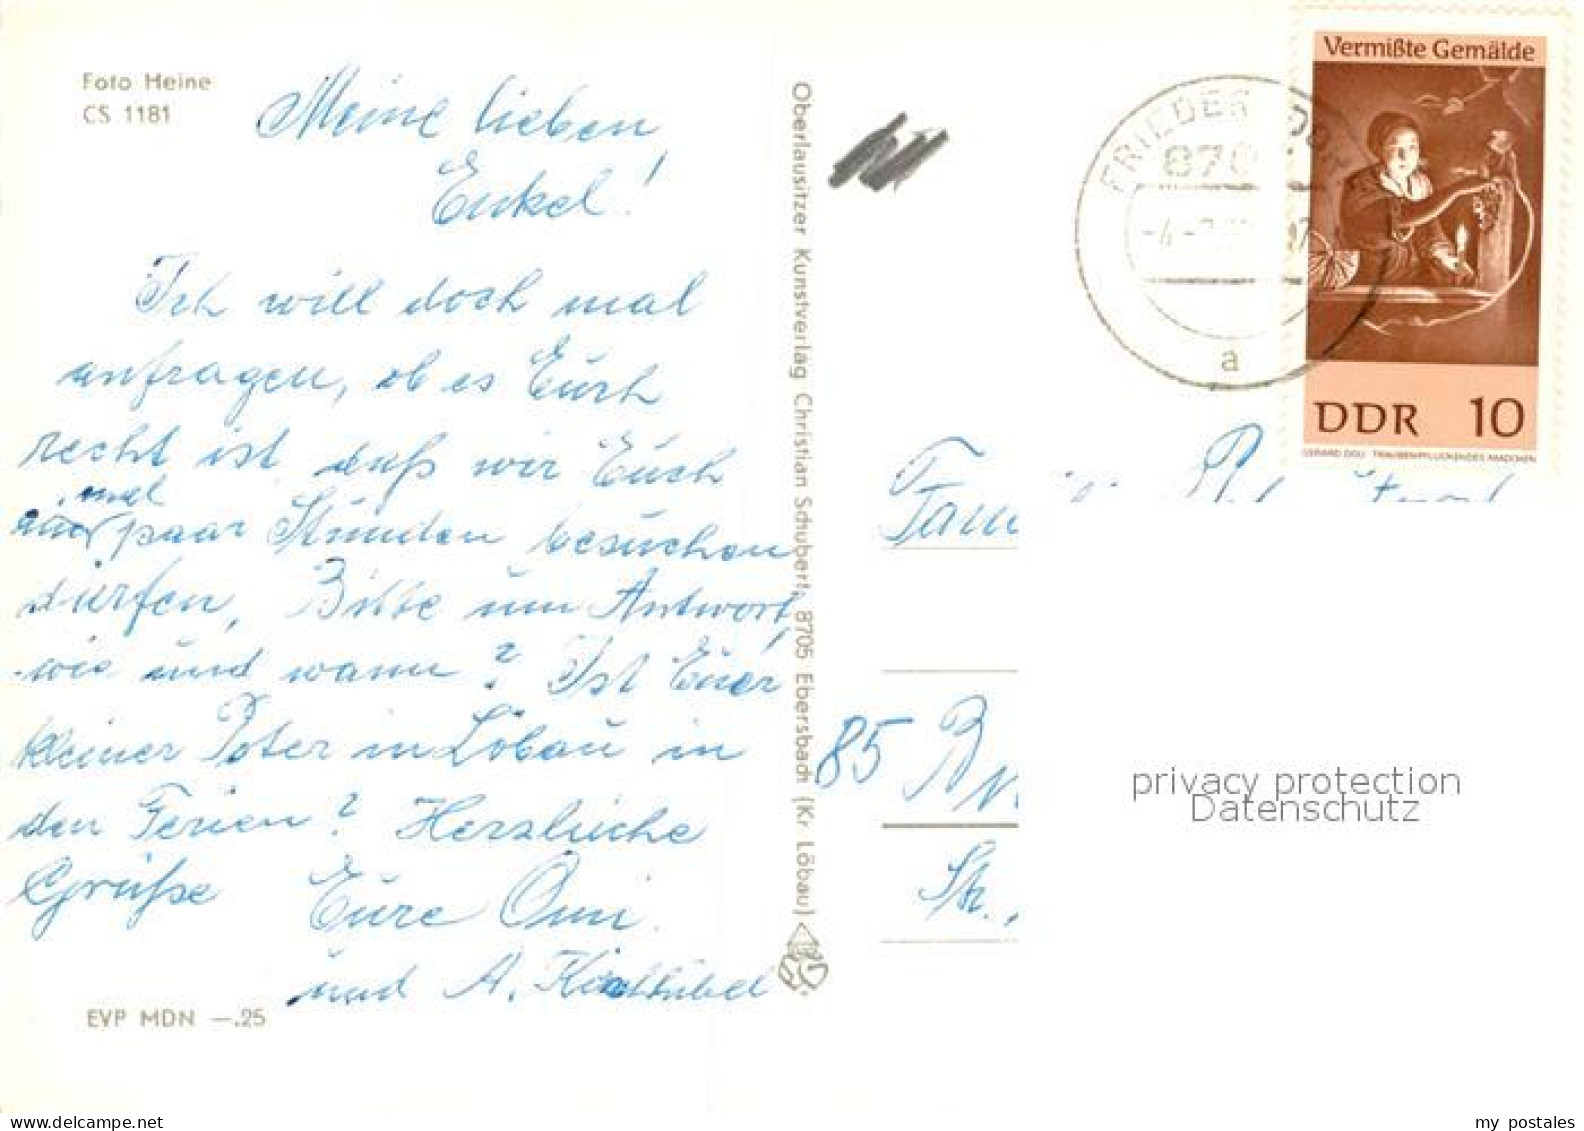 Foto Heine
CS 1181
Meine lieben
Enkel!
Ich will doch mal
anfragen, ob es Euch
recht ist daß wir Euch
mal
paar Stunden besuchen
dürfen, Bitte um Antwort,
wie und wann? Ist Euer
kleiner Peter in Löbau in
den Ferien? Herzliche
Grüße Eure Omi
und A.
EVP MDN —.25
Oberlausitzer Kunstverlag Christian Schubert, 8705 Ebersbach (Kr Löbau)
Vermißte Gemälde
DDR 10
GERARD DOU · TRAUBENPFLÜCKENDES MÄDCHEN
a
85
Str.
privacy protection
Datenschutz
my postales